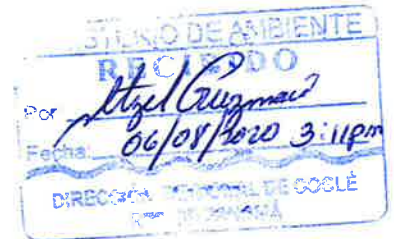 DE AMBIENTE
RECIBIDO
Por Itzel Guzmán
Fecha: 06/08/2020 3:11pm
DIRECCIÓN DE COCLÉ